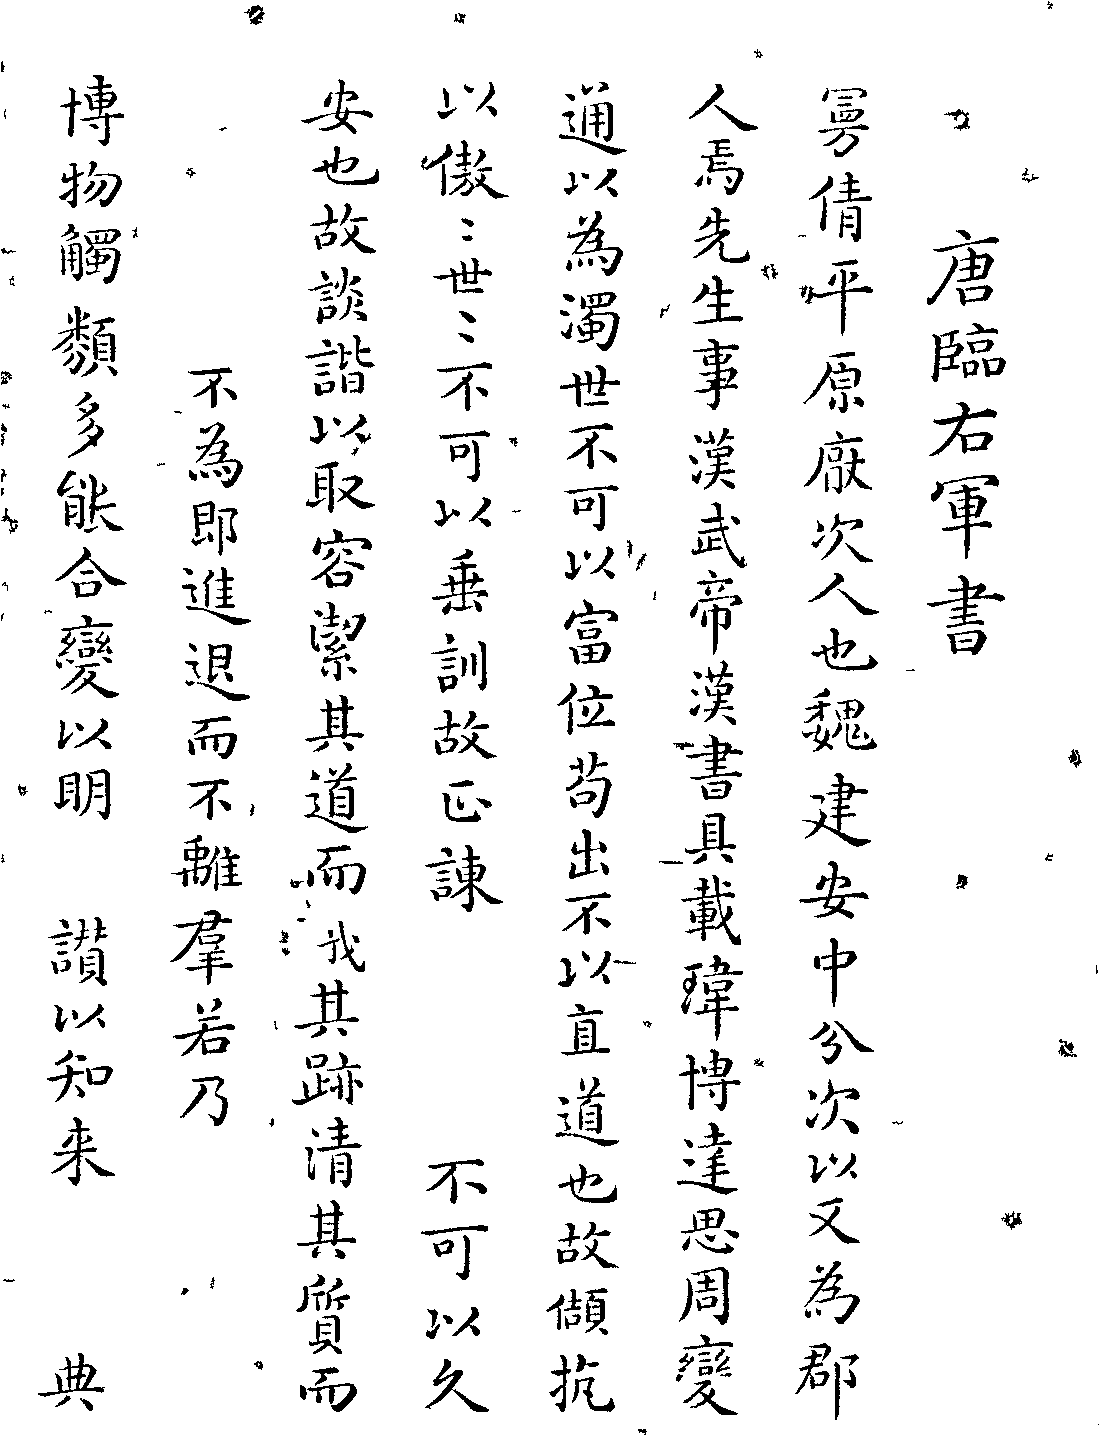 唐臨右軍書
曼倩平原厭次人也魏建安中分次以又為郡
人焉先生事漢武帝漢書具載瑋博達思周變
通以為濁世不可以富位苟出不以直道也故傾抗
以傲〻世〻不可以垂訓故正諫 不可以久
安也故談諧以取容潔其道而我其跡清其質而
不為即進退而不離羣若乃
博物觸類多能合變以明 讚以知来 典